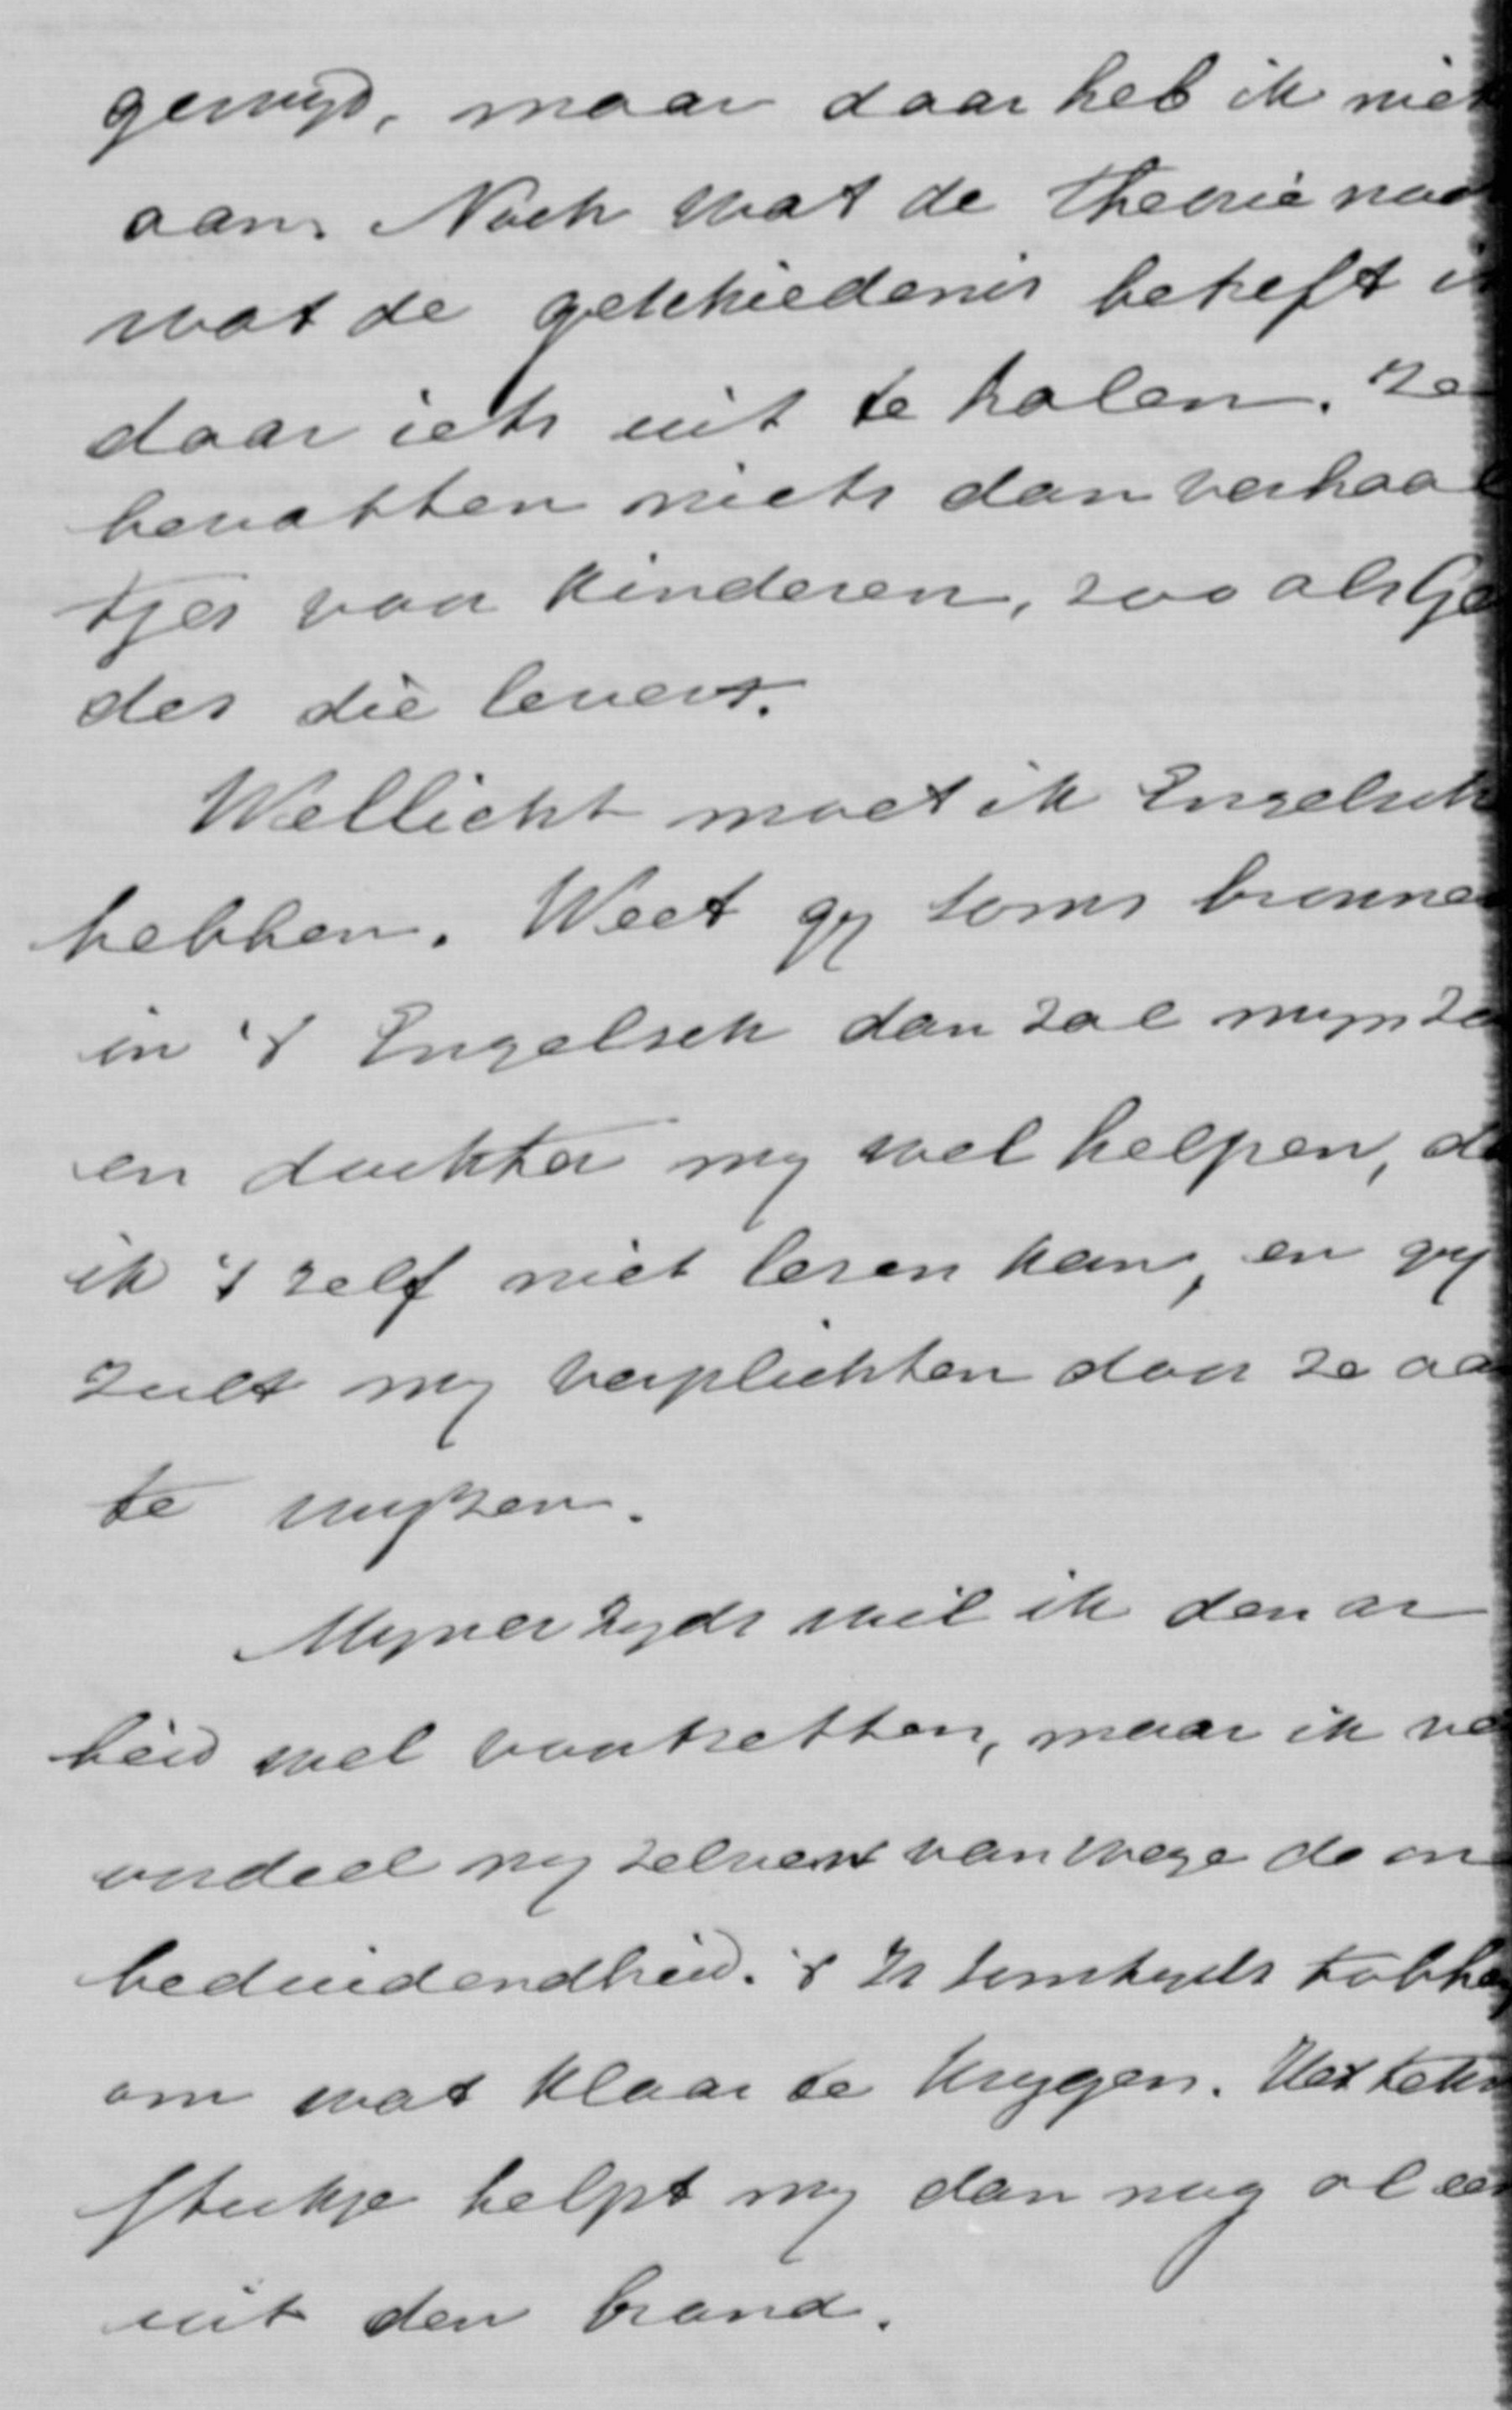 gewijd, maar daar heb ik niet
aan. Noch wat de theorie noch
wat de geschiedenis betreft is
daar iets uit te halen. Ze
bevatten niets dan verhaal
tjes voor kinderen, zoo als
des die levert.
Wellicht moet ik Engelsch
hebben. Weet gij soms bronnen
in 't Engelsch dan zal mijn
en dochter mij wel helpen,
ik 't zelf niet lezen kan, en gij
zult mij verplichten door ze aan
te wijzen.
Mijnerzijds wil ik den ar
beid wel voortzetten, maar ik ver
oordeel mij zelven vanwege de on
beduidendheid. 't Is somtijds tobben
om wat klaar te krijgen. Het
stukje helpt mij dan nog al eens
uit den brand.